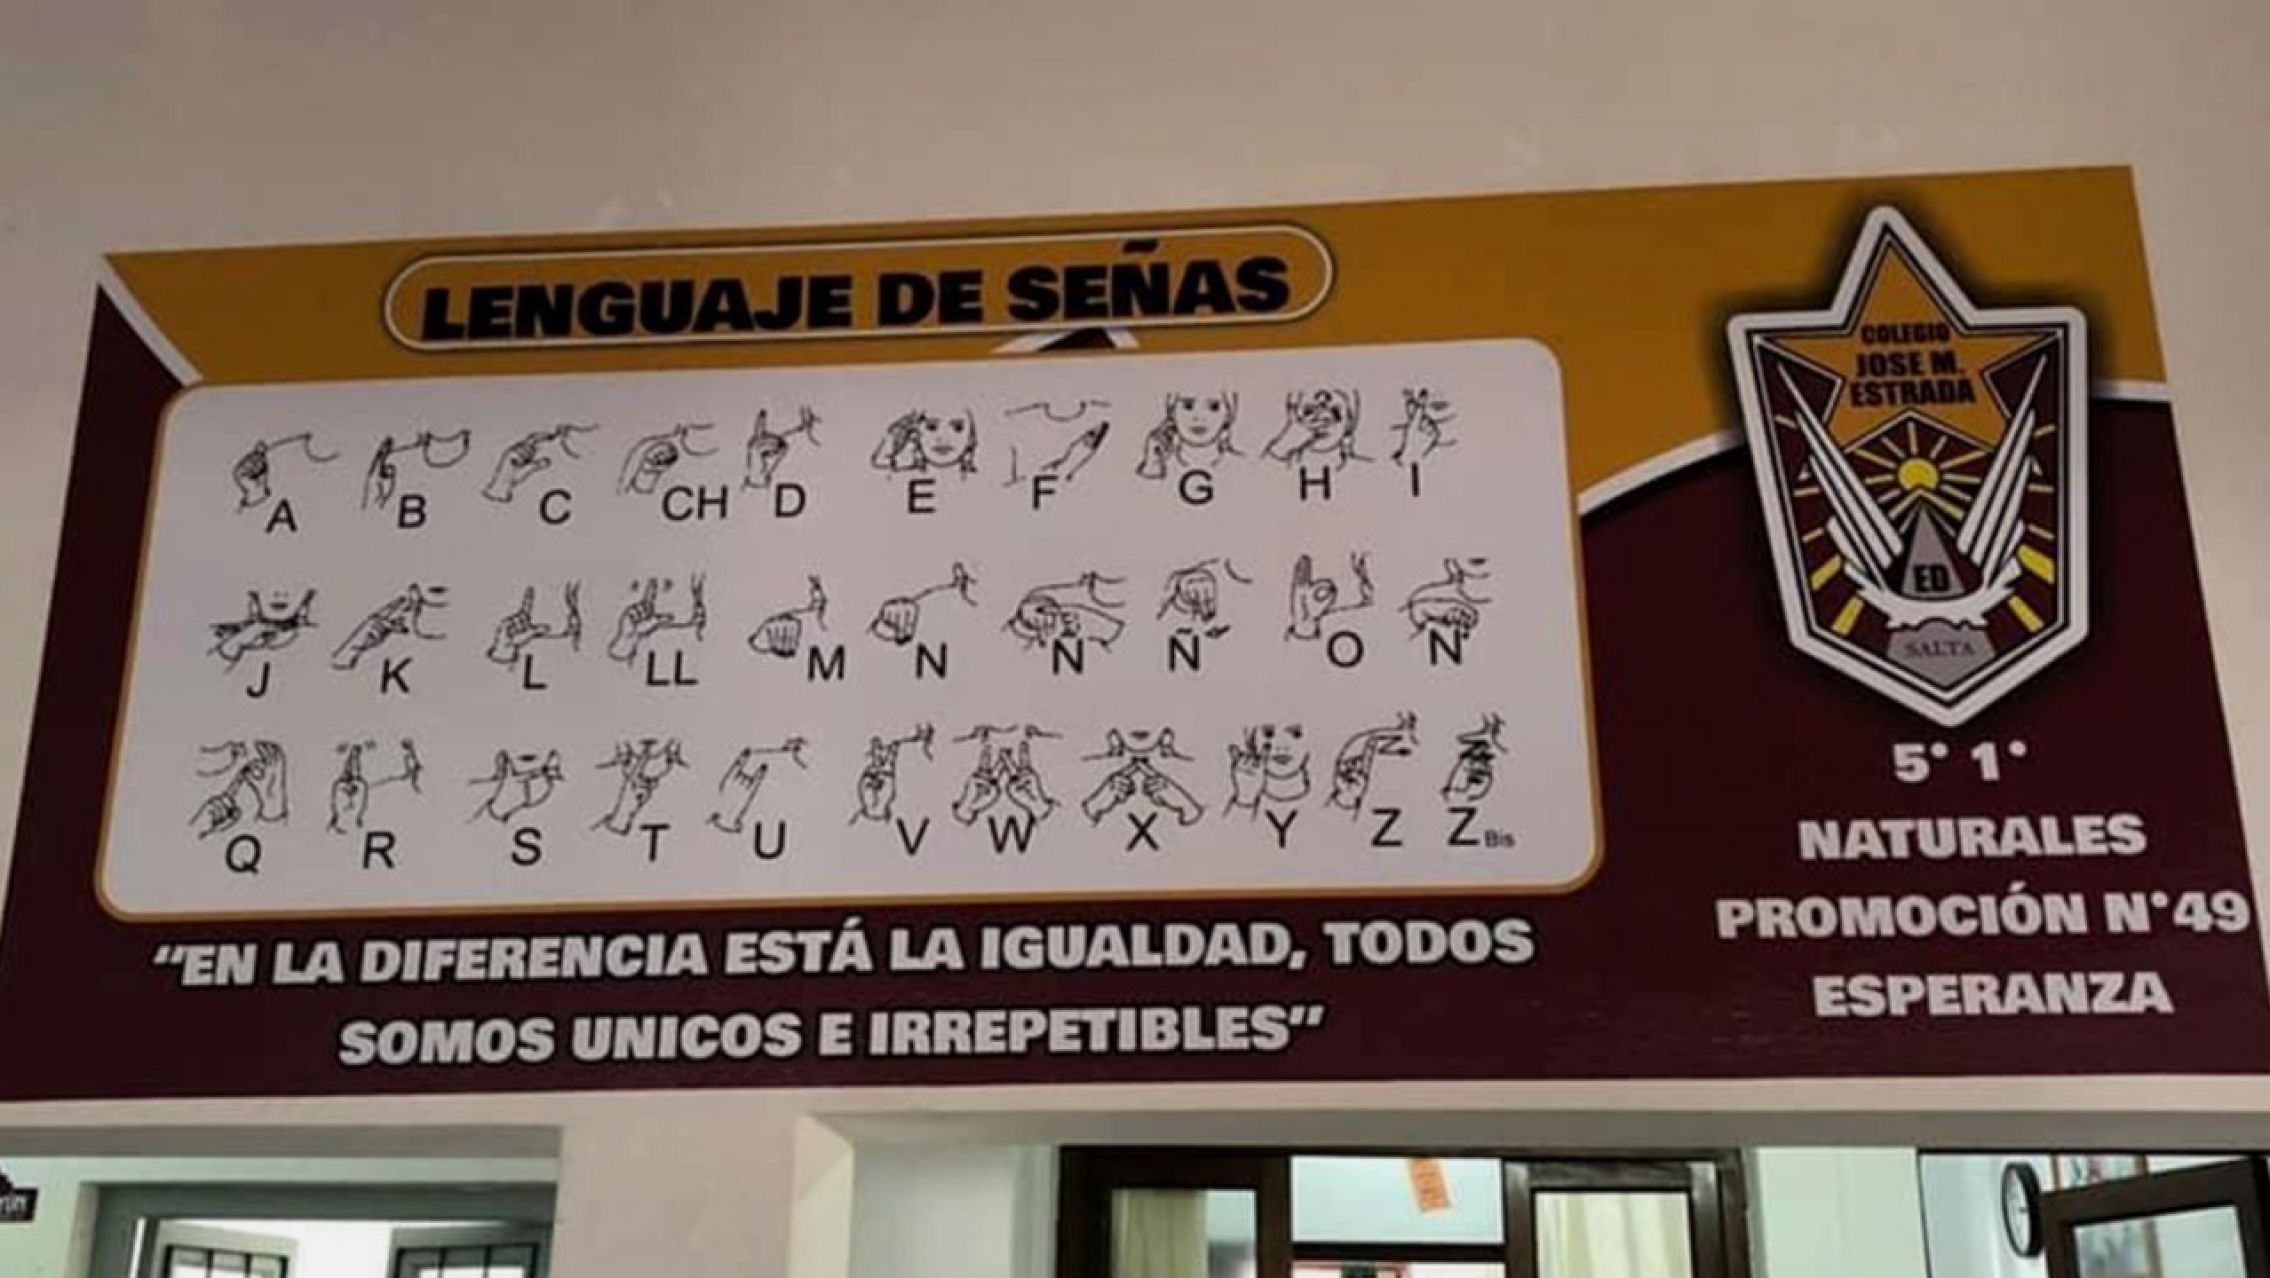 LENGUAJE DE SEÑAS
A B C CH D E F G H I
J K L LL M N Ñ Ñ O Ñ
Q R S T U V W X Y Z Z Bis
"EN LA DIFERENCIA ESTÁ LA IGUALDAD, TODOS
SOMOS UNICOS E IRREPETIBLES"
COLEGIO
JOSE M.
ESTRADA
ED
SALTA
5° 1°
NATURALES
PROMOCIÓN N°49
ESPERANZA